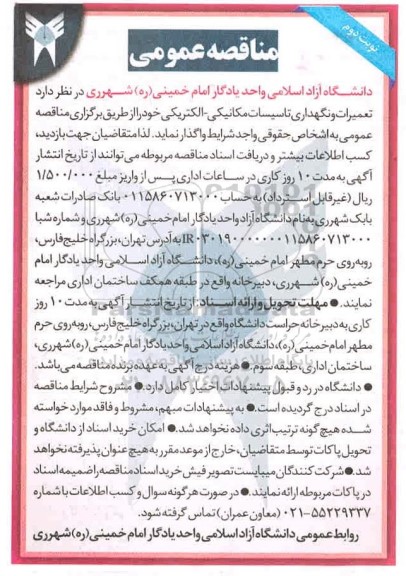 نوبت دوم
مناقصه عمومی
دانشگاه آزاد اسلامی واحد یادگار امام خمینی(ره) شهرری در نظر دارد
تعمیرات و نگهداری تاسیسات مکانیکی-الکتریکی خود را از طریق برگزاری مناقصه
عمومی به اشخاص حقوقی واجد شرایط واگذار نماید. لذا متقاضیان جهت بازدید،
کسب اطلاعات بیشتر و دریافت اسناد مناقصه مربوطه می‌توانند از تاریخ انتشار
آگهی به مدت ۱۰ روز کاری در ساعات اداری پس از واریز مبلغ ۱/۵۰۰/۰۰۰
ریال (غیرقابل استرداد) به حساب ۰۱۱۵۸۶۰۷۱۳۰۰۰ بانک صادرات شعبه
بابک شهرری به نام دانشگاه آزاد واحد یادگار امام خمینی(ره) شهرری و شماره شبا
IR۰۳۰۱۹۰۰۰۰۰۰۰۱۱۵۸۶۰۷۱۳۰۰۰ به آدرس تهران، بزرگراه خلیج فارس،
روبه‌روی حرم مطهر امام خمینی(ره)، دانشگاه آزاد اسلامی واحد یادگار امام
خمینی (ره) شهرری، دبیرخانه واقع در طبقه همکف ساختمان اداری مراجعه
نمایند. ● مهلت تحویل و ارائه اسناد: از تاریخ انتشار آگهی به مدت ۱۰ روز
کاری به دبیرخانه حراست دانشگاه واقع در تهران، بزرگراه خلیج فارس، روبه‌روی حرم
مطهر امام خمینی(ره)، دانشگاه آزاد اسلامی واحد یادگار امام خمینی(ره) شهرری،
ساختمان اداری، طبقه سوم. ● هزینه درج آگهی به عهده برنده مناقصه می‌باشد.
● دانشگاه در رد و قبول پیشنهادات اختیار کامل دارد. ● مشروح شرایط مناقصه
در اسناد درج گردیده است. ● به پیشنهادات مبهم، مشروط و فاقد موارد خواسته
شده هیچ گونه ترتیب اثری داده نخواهد شد. ● امکان خرید اسناد از دانشگاه و
تحویل پاکات توسط متقاضیان، خارج از موعد مقرر به هیچ عنوان پذیرفته نخواهد
شد. ● شرکت کنندگان میبایست تصویر فیش خرید اسناد مناقصه را ضمیمه اسناد
در پاکات مربوطه ارائه نمایند. ● در صورت هرگونه سوال و کسب اطلاعات با شماره
۰۲۱-۵۵۲۲۹۳۳۷ (معاون عمران) تماس گرفته شود.
روابط عمومی دانشگاه آزاد اسلامی واحد یادگار امام خمینی (ره) شهرری